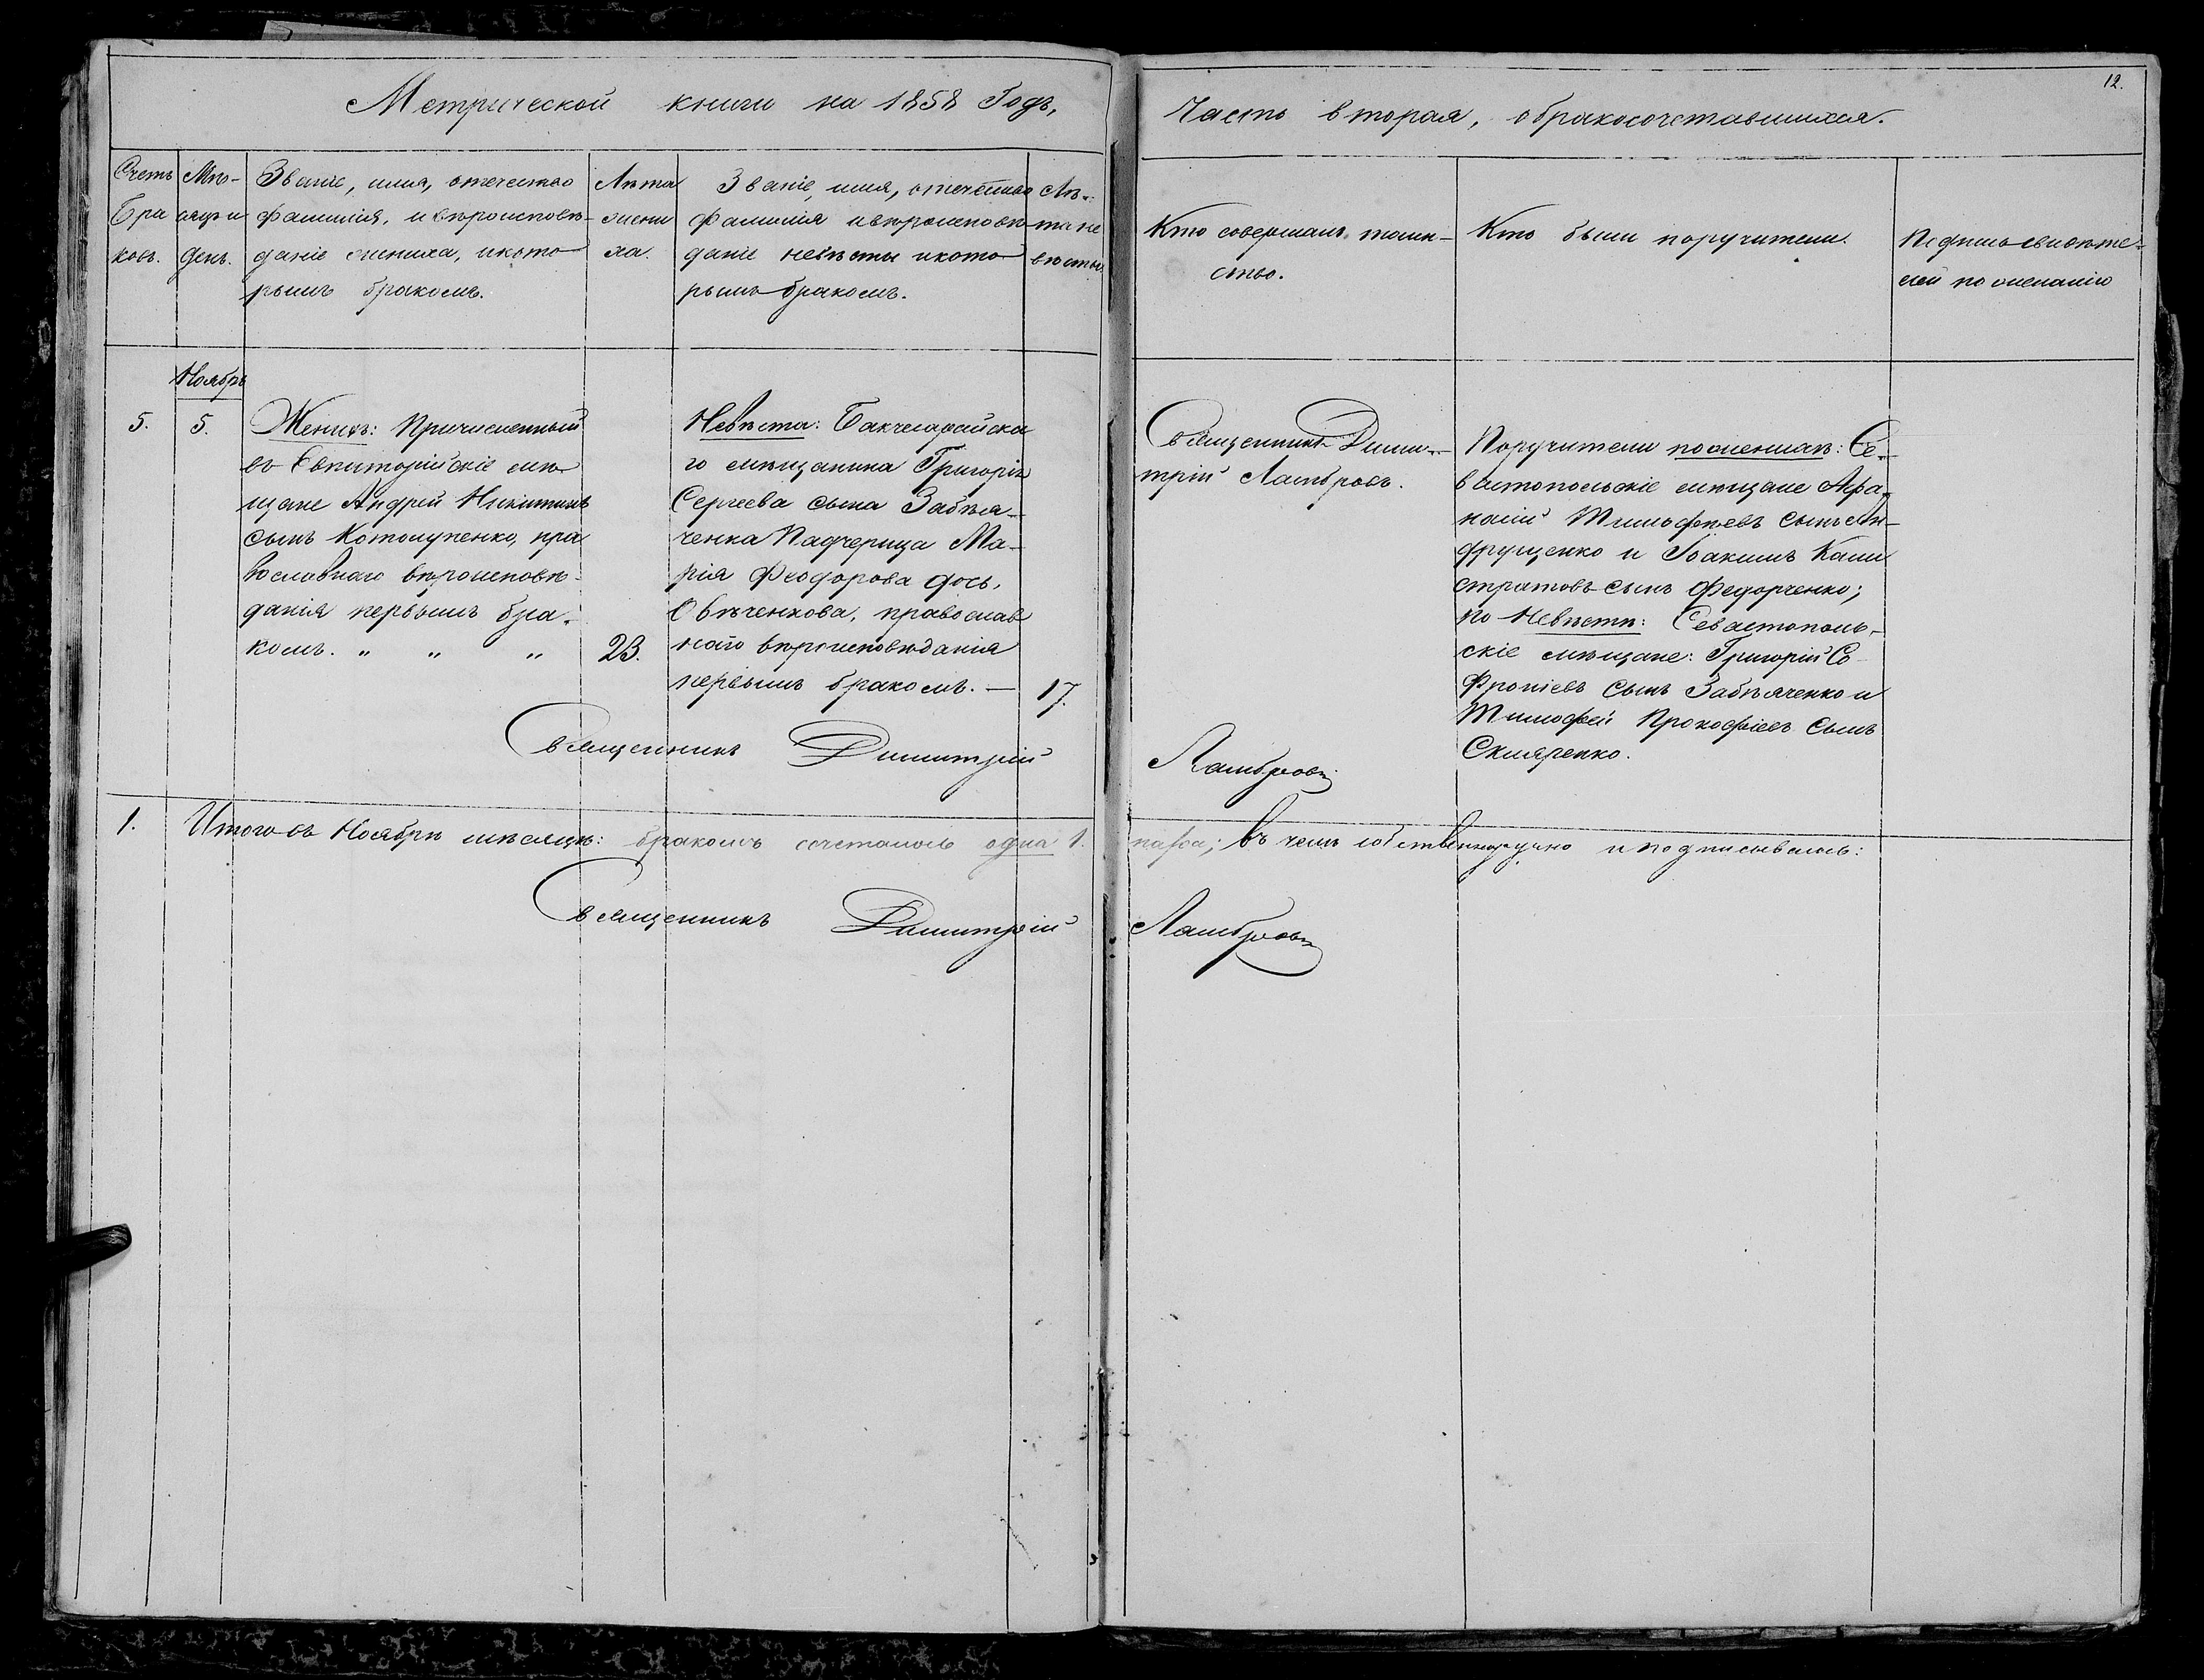 12.
Метрической книги на 1858 Годъ,
Часть вторая, обракосочетавшихся.
Счетъ
Бра
ковъ.
Мѣ-
сяцъ и
День.
Званіе, имя, отечество
фамилія, и вѣроисповѣ-
даніе жениха, и кото
рымъ бракомъ.
Лѣта
жени
ха.
Званіе, имя, отечество
фамилія и вѣроисповѣ-
даніе невѣсты и кото
рымъ бракомъ.
Лѣ-
та не
вѣсты.
Кто совершалъ таин-
ство.
Кто были поручители.
Подпись свидѣте-
лей по желанію
Ноябрь
5.
5.
Женихъ: Причисленный
въ Евпаторійскіе мѣ
щане Андрей Никитинъ
сынъ Котолупенко, пра
вославнаго вѣроисповѣ-
данія первымъ бра-
комъ. " " "
23.
Невѣста: Бакчесарайска
го мѣщанина Григорія
Сергеева сына Забѣя-
ченка Падчерица Ма-
рія Феодорова дочь,
Овѣченкова, православ
наго вѣроисповѣданія
первымъ бракомъ. —
17.
Священникъ Дими-
трій Ламбровъ.
Поручители по женихѣ: Се-
вастопольскіе мѣщане Афа-
насій Тимофѣевъ сынъ Ан-
друщенко и Іоакимъ Кали
стратовъ сынъ Федорченко;
по Невѣстѣ: Севастополь-
скіе мѣщане: Григорій Со
фроніевъ сынъ Забѣяченко и
Тимофей Прокофіевъ сынъ
Скляренко.
Священникъ Димитрій Ламбровъ
1. Итого въ Ноябрѣ мѣсяцѣ: бракомъ сочеталось одна 1. пара; въ чемъ собственноручно и подписываюсь:
Священникъ Димитрій Ламбровъ